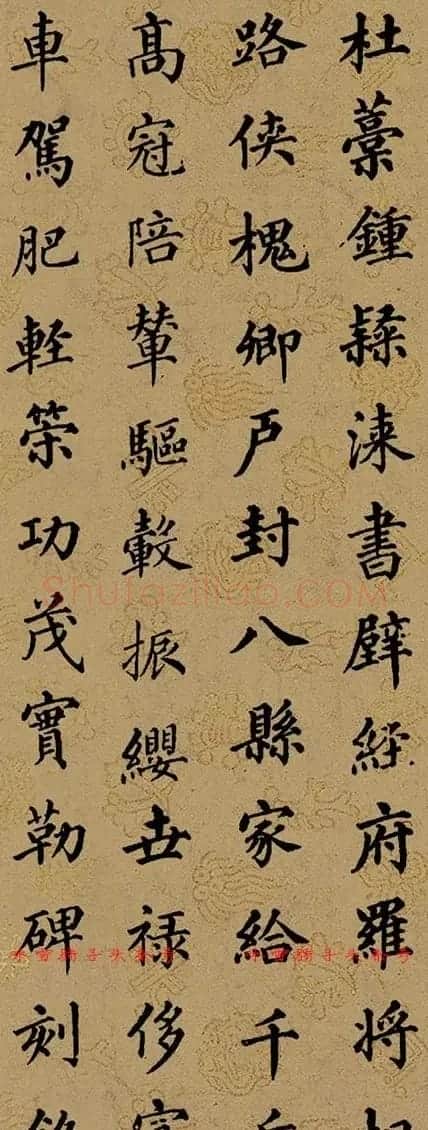 杜藁鍾隸漆書壁經府羅將
路俠槐卿户封八縣家給千
髙冠陪輦驅轂振纓世禄侈
車駕肥輕策功茂實勒碑刻